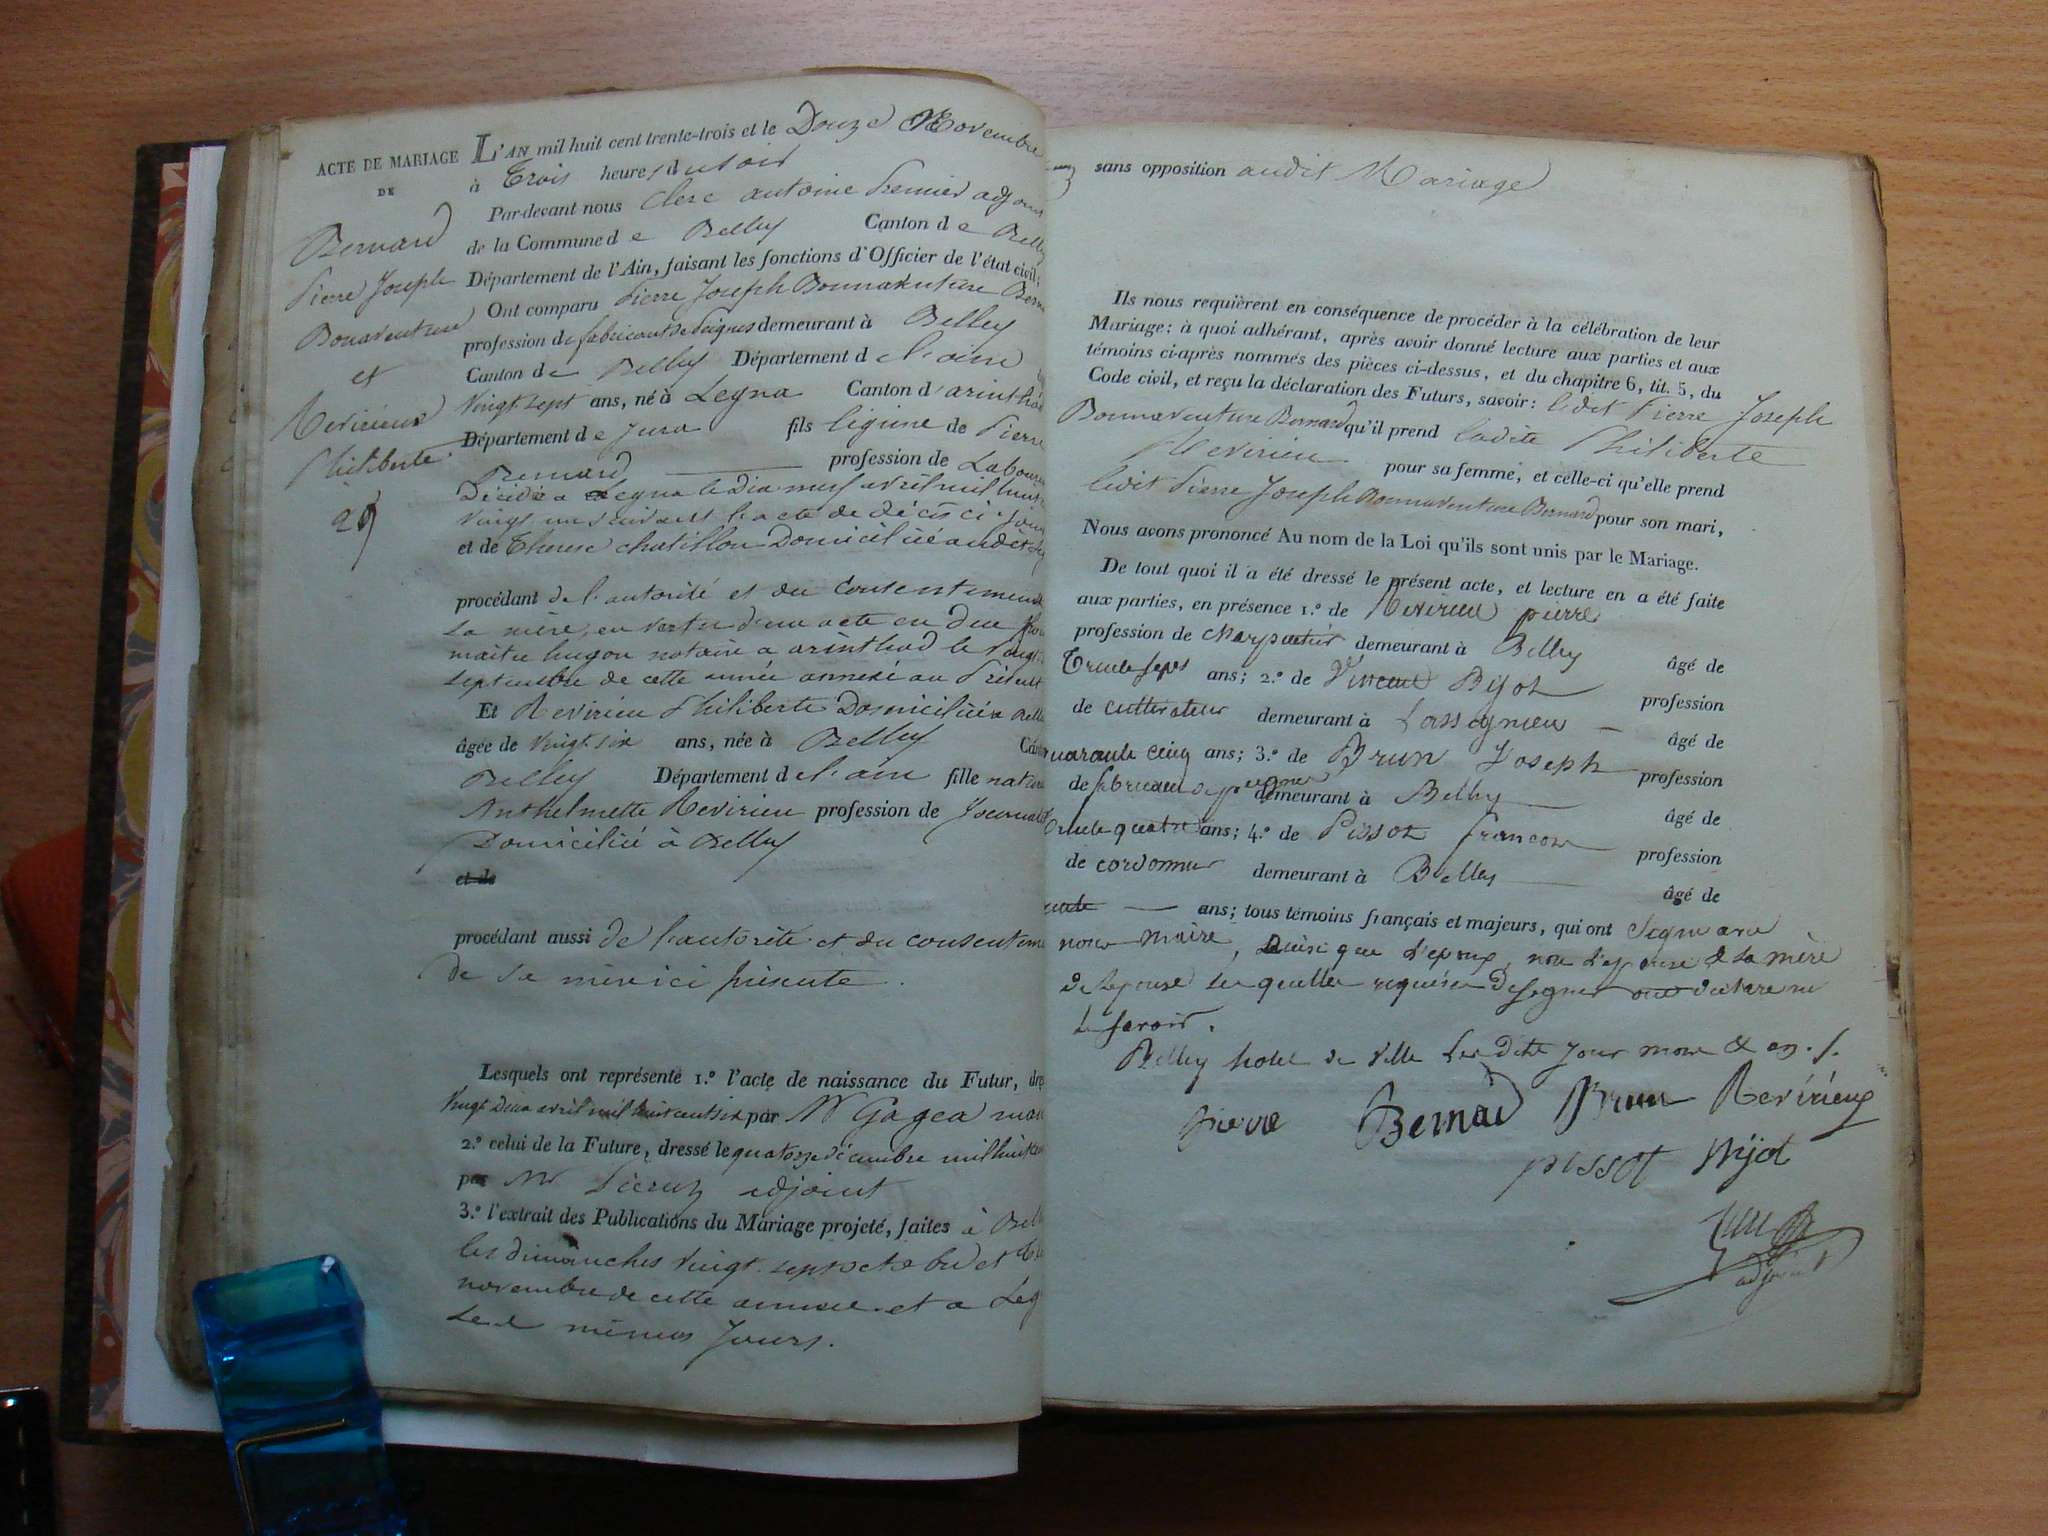 ACTE DE MARIAGE
DE
Bernard
Pierre Joseph
Bonaventure
et
Revirieux
Philiberte
29
L'AN mil huit cent trente-trois et le Douze Novembre
à Trois heures du soir
Par-devant nous Clerc antoine Premier adjoint
de la Commune de Belley Canton de Belley
Département de l'Ain, faisant les fonctions d'Officier de l'état civil;
Ont comparu Pierre Joseph Bonnaventure Bern
profession de fabricant de Peignes demeurant à Belley
Canton de Belley Département de l'ain
vingt sept ans, né à Legna Canton d'arinthod
Département de Jura fils légime de Pierre
Bernard profession de Laboureur
Décédé a Legna le Dix neuf avril mil huit
vingt un suivant l'acte de décès ci-join
et de Therese chatillon Domiciliée audit
procédant de l'autorité et du Consentement
sa mère, en vertu d'un acte en due
maitre hugon notaire a arinthod le vingt
septembre de cette année annexé au Présent
Et Revirieu Philiberte Domiciliée a Belle
âgée de vingt six ans, née à Belley Canton
Belley Département de l'ain fille natur
Anthelmette Revirieu profession de Journali
Domiciliée à Belley
et de
procédant aussi de l'autorité et du consenteme
de sa mère ici présente.
Lesquels ont représenté 1.º l'acte de naissance du Futur, dre
vingt deux avril mil huit cent six par Mr Gagea mai
2.º celui de la Future, dressé le quatorze décembre mil huit cen
par Mr adjoint
3.º l'extrait des Publications du Mariage projeté, faites à Belle
les dimanches vingt sept octobre et
novembre de cette année et a Leg
les mêmes Jours.
sans opposition audit Mariage
Ils nous requièrent en conséquence de procéder à la célébration de leur
Mariage: à quoi adhérant, après avoir donné lecture aux parties et aux
témoins ci-après nommés des pièces ci-dessus, et du chapitre 6, tit. 5, du
Code civil, et reçu la déclaration des Futurs, savoir: ledit Pierre Joseph
Bonnaventure Bernard qu'il prend ladite Philiberte
Revirieu pour sa femme, et celle-ci qu'elle prend
ledit Pierre Joseph Bonnaventure Bernard pour son mari,
Nous avons prononcé Au nom de la Loi qu'ils sont unis par le Mariage.
De tout quoi il a été dressé le présent acte, et lecture en a été faite
aux parties, en présence 1.º de Revirieu pierre
profession de charpentier demeurant à Belley âgé de
Trente sept ans; 2.º de Vincent Bijot profession
de cultivateur demeurant à Lassignieu âgé de
uarante cinq ans; 3.º de Brun Joseph profession
de fabricant de peignes demeurant à Belley âgé de
Trente quatre ans; 4.º de Pissot francois profession
de cordonnier demeurant à Belley âgé de
ans; tous témoins français et majeurs, qui ont signé avec
nous maire, ainsi que l'epoux, non l'epouse & la mère
de l'epouse lesquelles requises de signer ont declaré ne
le savoir.
Belley hotel de ville les dits jour mois & an.
Pierre Bernad Brun Revirieux
pissot Bijot
adjoint